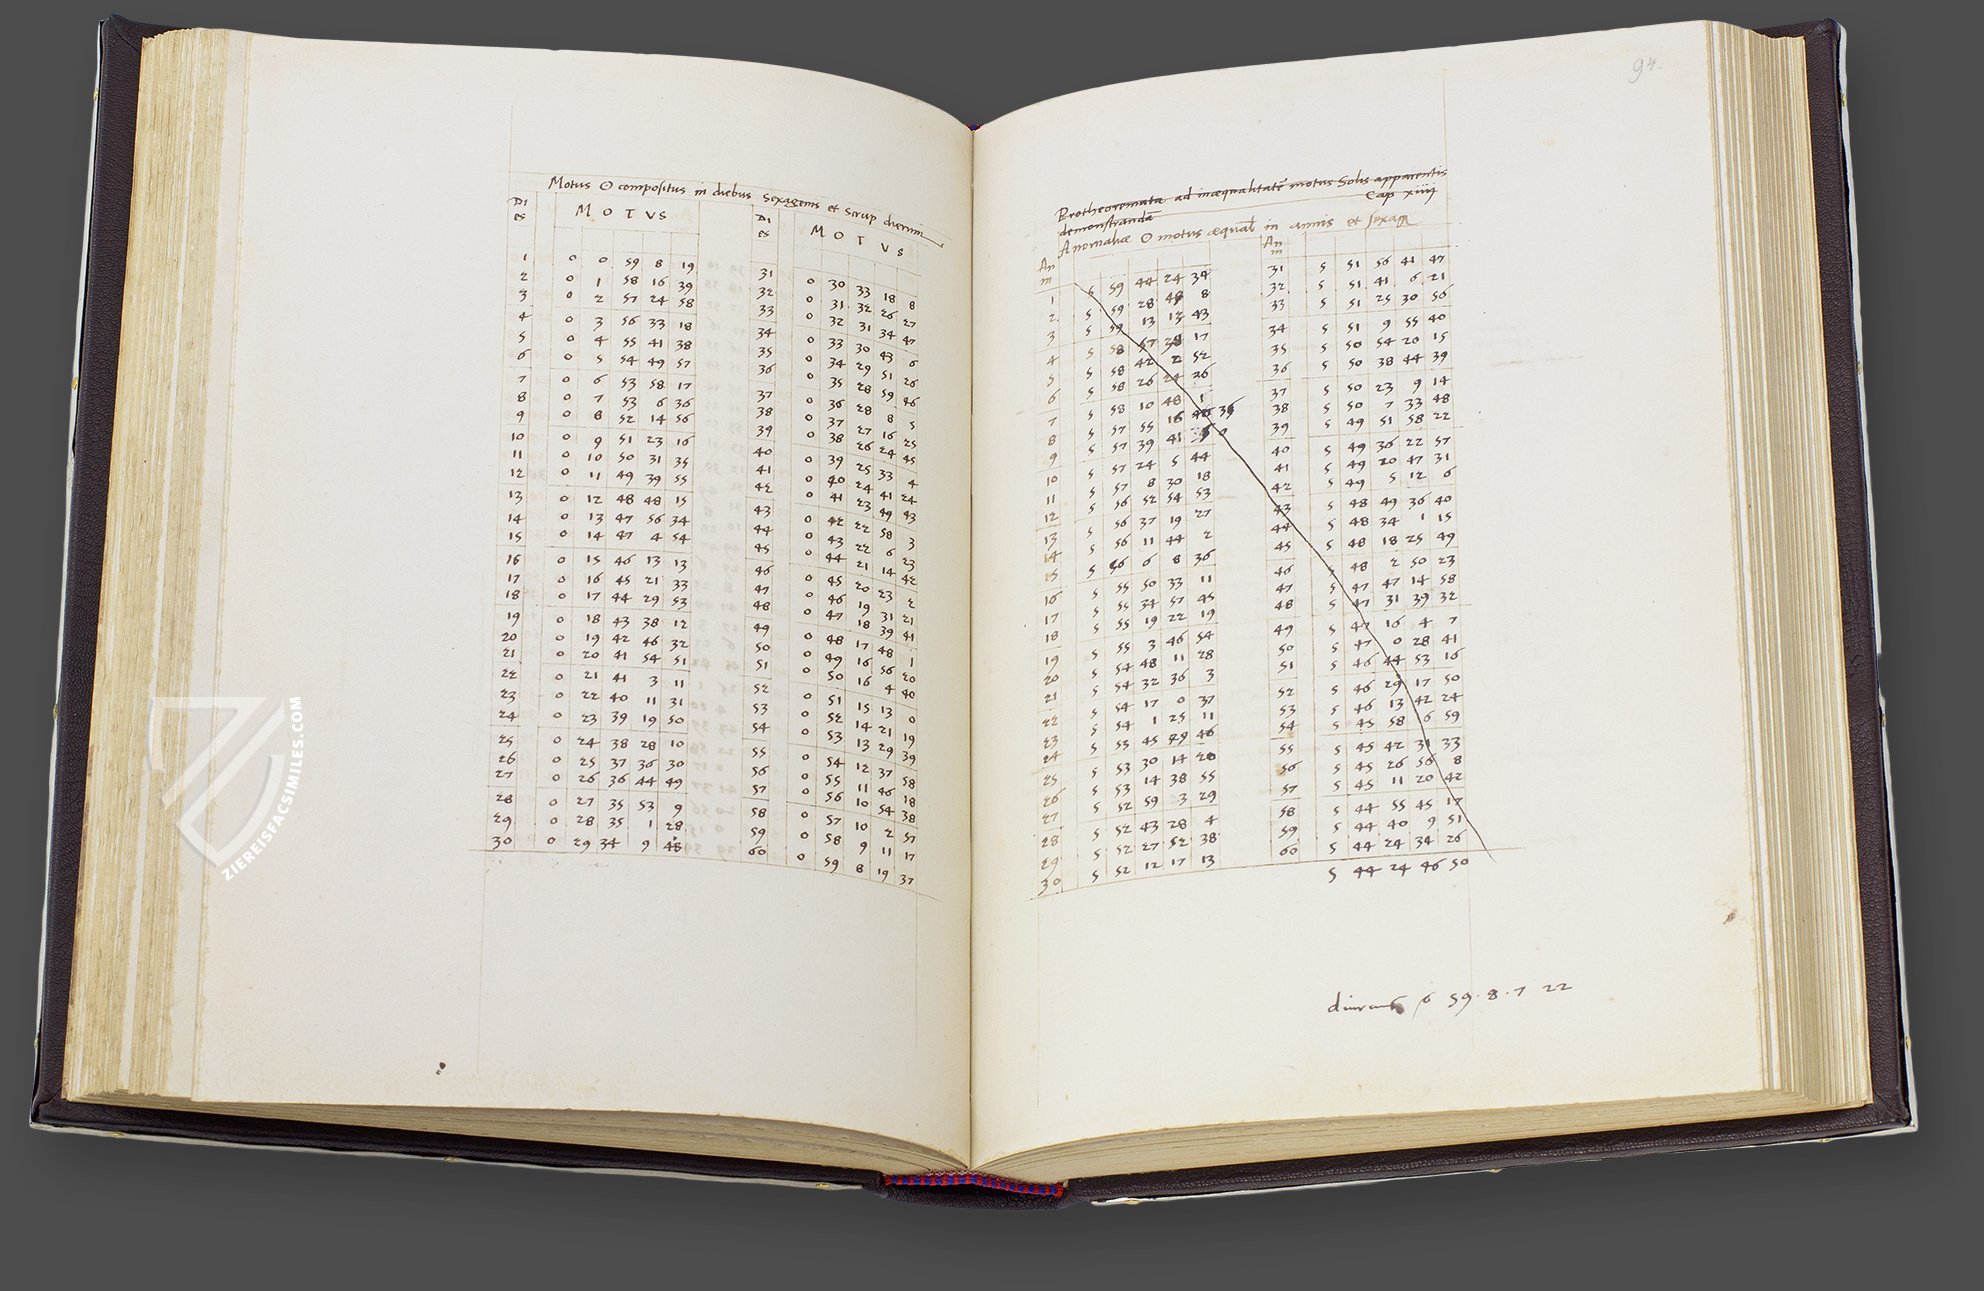 Motus ☉ compositus in diebus sexagenis et Scrup dierum
Di es M O T V S
1 0 0 59 8 19
2 0 1 58 16 39
3 0 2 57 24 58
4 0 3 56 33 18
5 0 4 55 41 38
6 0 5 54 49 57
7 0 6 53 58 17
8 0 7 53 6 36
9 0 8 52 14 56
10 0 9 51 23 16
11 0 10 50 31 35
12 0 11 49 39 55
13 0 12 48 48 15
14 0 13 47 56 34
15 0 14 47 4 54
16 0 15 46 13 13
17 0 16 45 21 33
18 0 17 44 29 53
19 0 18 43 38 12
20 0 19 42 46 32
21 0 20 41 54 51
22 0 21 41 3 11
23 0 22 40 11 31
24 0 23 39 19 50
25 0 24 38 28 10
26 0 25 37 36 30
27 0 26 36 44 49
28 0 27 35 53 9
29 0 28 35 1 28
30 0 29 34 9 48
Di es M O T V S
31 0 30 33 18 8
32 0 31 32 26 27
33 0 32 31 34 47
34 0 33 30 43 6
35 0 34 29 51 26
36 0 35 28 59 46
37 0 36 28 8 5
38 0 37 27 16 25
39 0 38 26 24 45
40 0 39 25 33 4
41 0 40 24 41 24
42 0 41 23 49 43
43 0 42 22 58 3
44 0 43 22 6 23
45 0 44 21 14 42
46 0 45 20 23 2
47 0 46 19 31 21
48 0 47 18 39 41
49 0 48 17 48 1
50 0 49 16 56 20
51 0 50 16 4 40
52 0 51 15 13 0
53 0 52 14 21 19
54 0 53 13 29 39
55 0 54 12 37 58
56 0 55 11 46 18
57 0 56 10 54 38
58 0 57 10 2 57
59 0 58 9 11 17
60 0 59 8 19 37
94
Protheoremata ad inæqualitatē motus Solis apparentis
demonstranda Cap xiiij
Anomaliæ ☉ motus æqual in annis et sexag
An
1 5 59 44 24 34
2 5 59 28 49 8
3 5 59 13 13 43
4 5 58 57 28 17
5 5 58 42 2 52
6 5 58 26 24 26
7 5 58 10 48 1
8 5 57 55 16 35
9 5 57 39 41 0
10 5 57 24 5 44
11 5 57 8 30 18
12 5 56 52 54 53
13 5 56 37 19 27
14 5 56 11 44 2
15 5 56 6 8 36
16 5 55 50 33 11
17 5 55 34 57 45
18 5 55 19 22 19
19 5 55 3 46 54
20 5 54 48 11 28
21 5 54 32 36 3
22 5 54 17 0 37
23 5 54 1 25 11
24 5 53 45 49 46
25 5 53 30 14 20
26 5 53 14 38 55
27 5 52 59 3 29
28 5 52 43 28 4
29 5 52 27 52 38
30 5 52 12 17 13
An
31 5 51 56 41 47
32 5 51 41 6 21
33 5 51 25 30 56
34 5 51 9 55 40
35 5 50 54 20 15
36 5 50 38 44 39
37 5 50 23 9 14
38 5 50 7 33 48
39 5 49 51 58 22
40 5 49 36 22 57
41 5 49 20 47 31
42 5 49 5 12 6
43 5 48 49 36 40
44 5 48 34 1 15
45 5 48 18 25 49
46 5 48 2 50 23
47 5 47 47 14 58
48 5 47 31 39 32
49 5 47 16 4 7
50 5 47 0 28 41
51 5 46 44 53 16
52 5 46 29 17 50
53 5 46 13 42 24
54 5 45 58 6 59
55 5 45 42 31 33
56 5 45 26 56 8
57 5 45 11 20 42
58 5 44 55 45 17
59 5 44 40 9 51
60 5 44 24 34 26
5 44 24 46 50
diurnus 59·8·7 22
ZIEREISFACSIMILES.COM